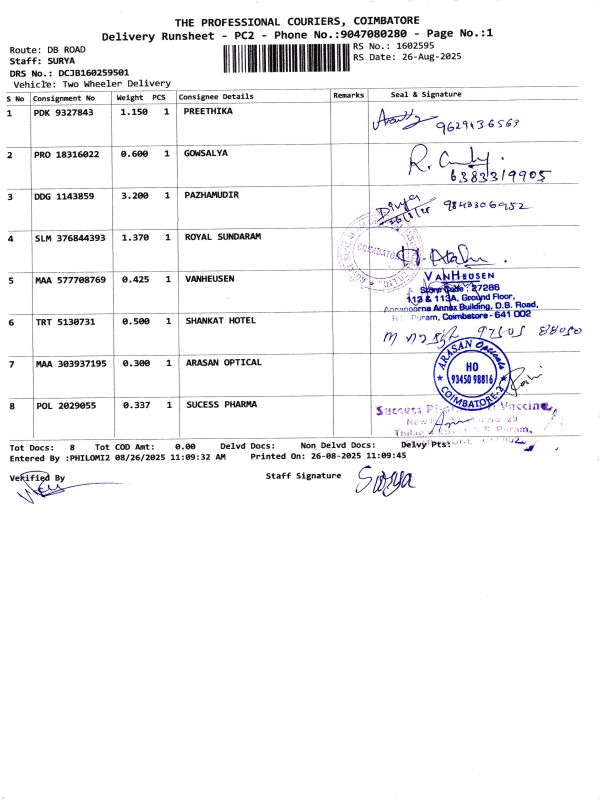 THE PROFESSIONAL COURIERS, COIMBATORE
Delivery Runsheet - PC2 - Phone No.:9047080280 - Page No.:1
Route: DB ROAD
RS No.: 1602595
Staff: SURYA
RS Date: 26-Aug-2025
DRS No.: DCJB160259501
Vehicle: Two Wheeler Delivery
S No Consignment No Weight PCS Consignee Details Remarks Seal & Signature
1 PDK 9327843 1.150 1 PREETHIKA
9629136563
2 PRO 18316022 0.600 1 GOWSALYA
6383319905
3 DDG 1143859 3.200 1 PAZHAMUDIR
Divya 9843306952
26/8/25
4 SLM 376844393 1.370 1 ROYAL SUNDARAM
COIMBATORE
5 MAA 577708769 0.425 1 VANHEUSEN
VANHEUSEN
Store Code : 27286
113 & 113A, Ground Floor,
Annapoorna Annex Building, D.B. Road,
Puram, Coimbatore - 641 002
6 TRT 5130731 0.500 1 SHANKAT HOTEL
7 MAA 303937195 0.300 1 ARASAN OPTICAL
ARASAN Opticals
HO
93450 98816
COIMBATORE-2
8 POL 2029055 0.337 1 SUCESS PHARMA
Success Vaccine
Puram,
Tot Docs: 8 Tot COD Amt: 0.00 Delvd Docs: Non Delvd Docs: Delvy Pts:
Entered By :PHILOMI2 08/26/2025 11:09:32 AM Printed On: 26-08-2025 11:09:45
Verified By
Staff Signature Surya